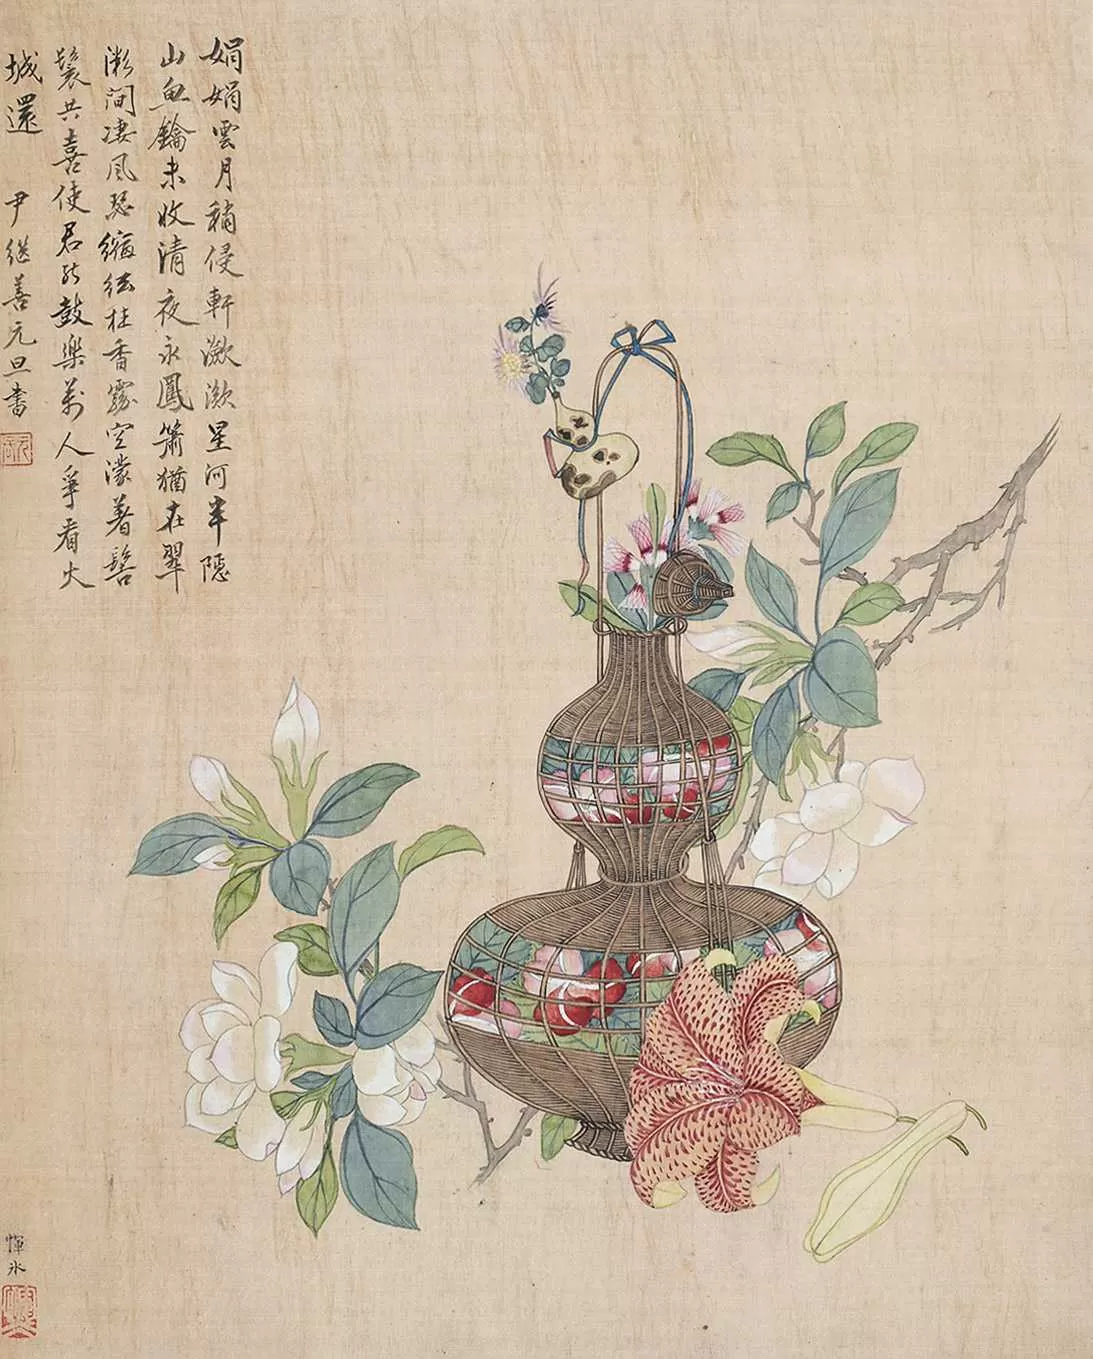 娟娟雲月稍侵軒瀲瀲星河半隱
山魚鑰未收清夜永鳳簫猶在翠
微間凄風瑟縮絃柱香霧空濛著髻
鬟共喜使君能鼓樂萬人爭看火
城還 尹继善元旦書
惲冰